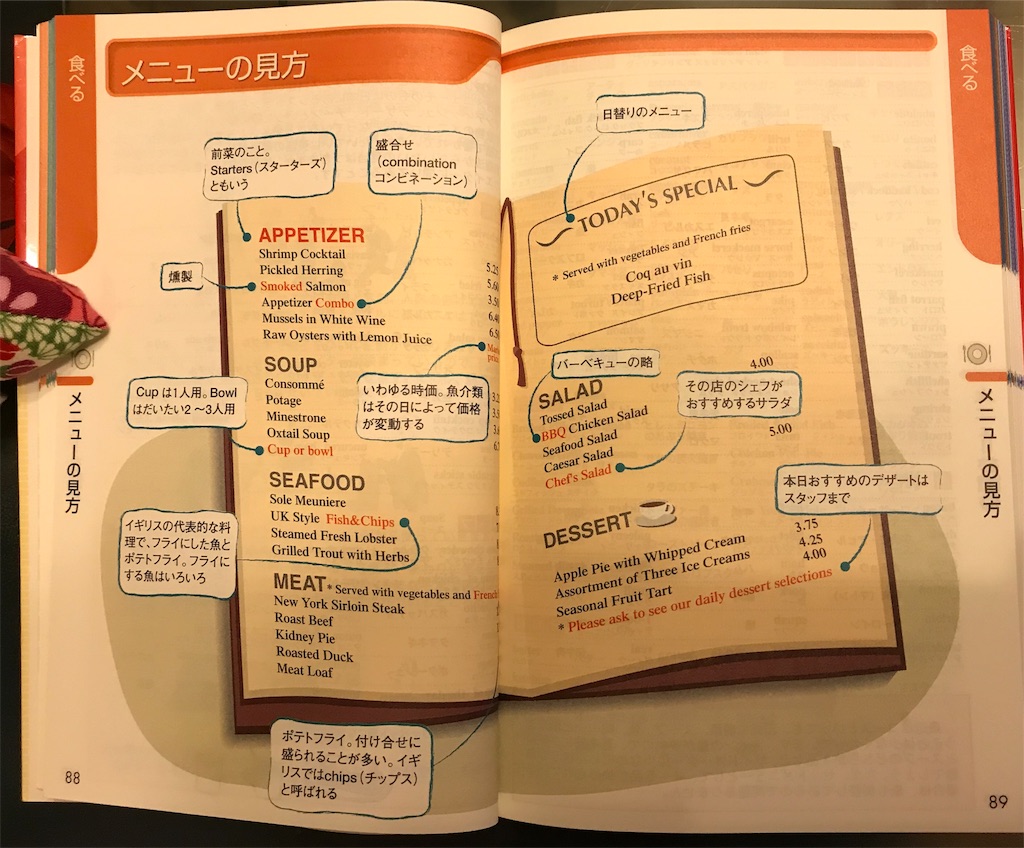 食べる
メニューの見方
前菜のこと。
Starters(スターターズ)
ともいう
盛合せ
(combination
コンビネーション)
燻製
APPETIZER
Shrimp Cocktail
Pickled Herring 5.25
Smoked Salmon 5.60
Appetizer Combo 3.50
Mussels in White Wine
Raw Oysters with Lemon Juice
SOUP
Consommé
Potage
Minestrone
Oxtail Soup
Cup or bowl
いわゆる時価。魚介類
はその日によって価格
が変動する
Cup は1人用。Bowl
はだいたい2~3人用
SEAFOOD
Sole Meuniere
UK Style Fish&Chips
Steamed Fresh Lobster
Grilled Trout with Herbs
イギリスの代表的な料
理で、フライにした魚と
ポテトフライ。フライに
する魚はいろいろ
MEAT * Served with vegetables and French
New York Sirloin Steak
Roast Beef
Kidney Pie
Roasted Duck
Meat Loaf
ポテトフライ。付け合せに
盛られることが多い。イギ
リスではchips(チップス)
と呼ばれる
メニューの見方
88
食べる
日替りのメニュー
TODAY'S SPECIAL
* Served with vegetables and French fries
Coq au vin
Deep-Fried Fish
バーベキューの略
その店のシェフが
おすすめするサラダ
SALAD 4.00
Tossed Salad
BBQ Chicken Salad
Seafood Salad 5.00
Caesar Salad
Chef's Salad
本日おすすめのデザートは
スタッフまで
DESSERT
Apple Pie with Whipped Cream 3.75
Assortment of Three Ice Creams 4.25
Seasonal Fruit Tart 4.00
* Please ask to see our daily dessert selections
メニューの見方
89